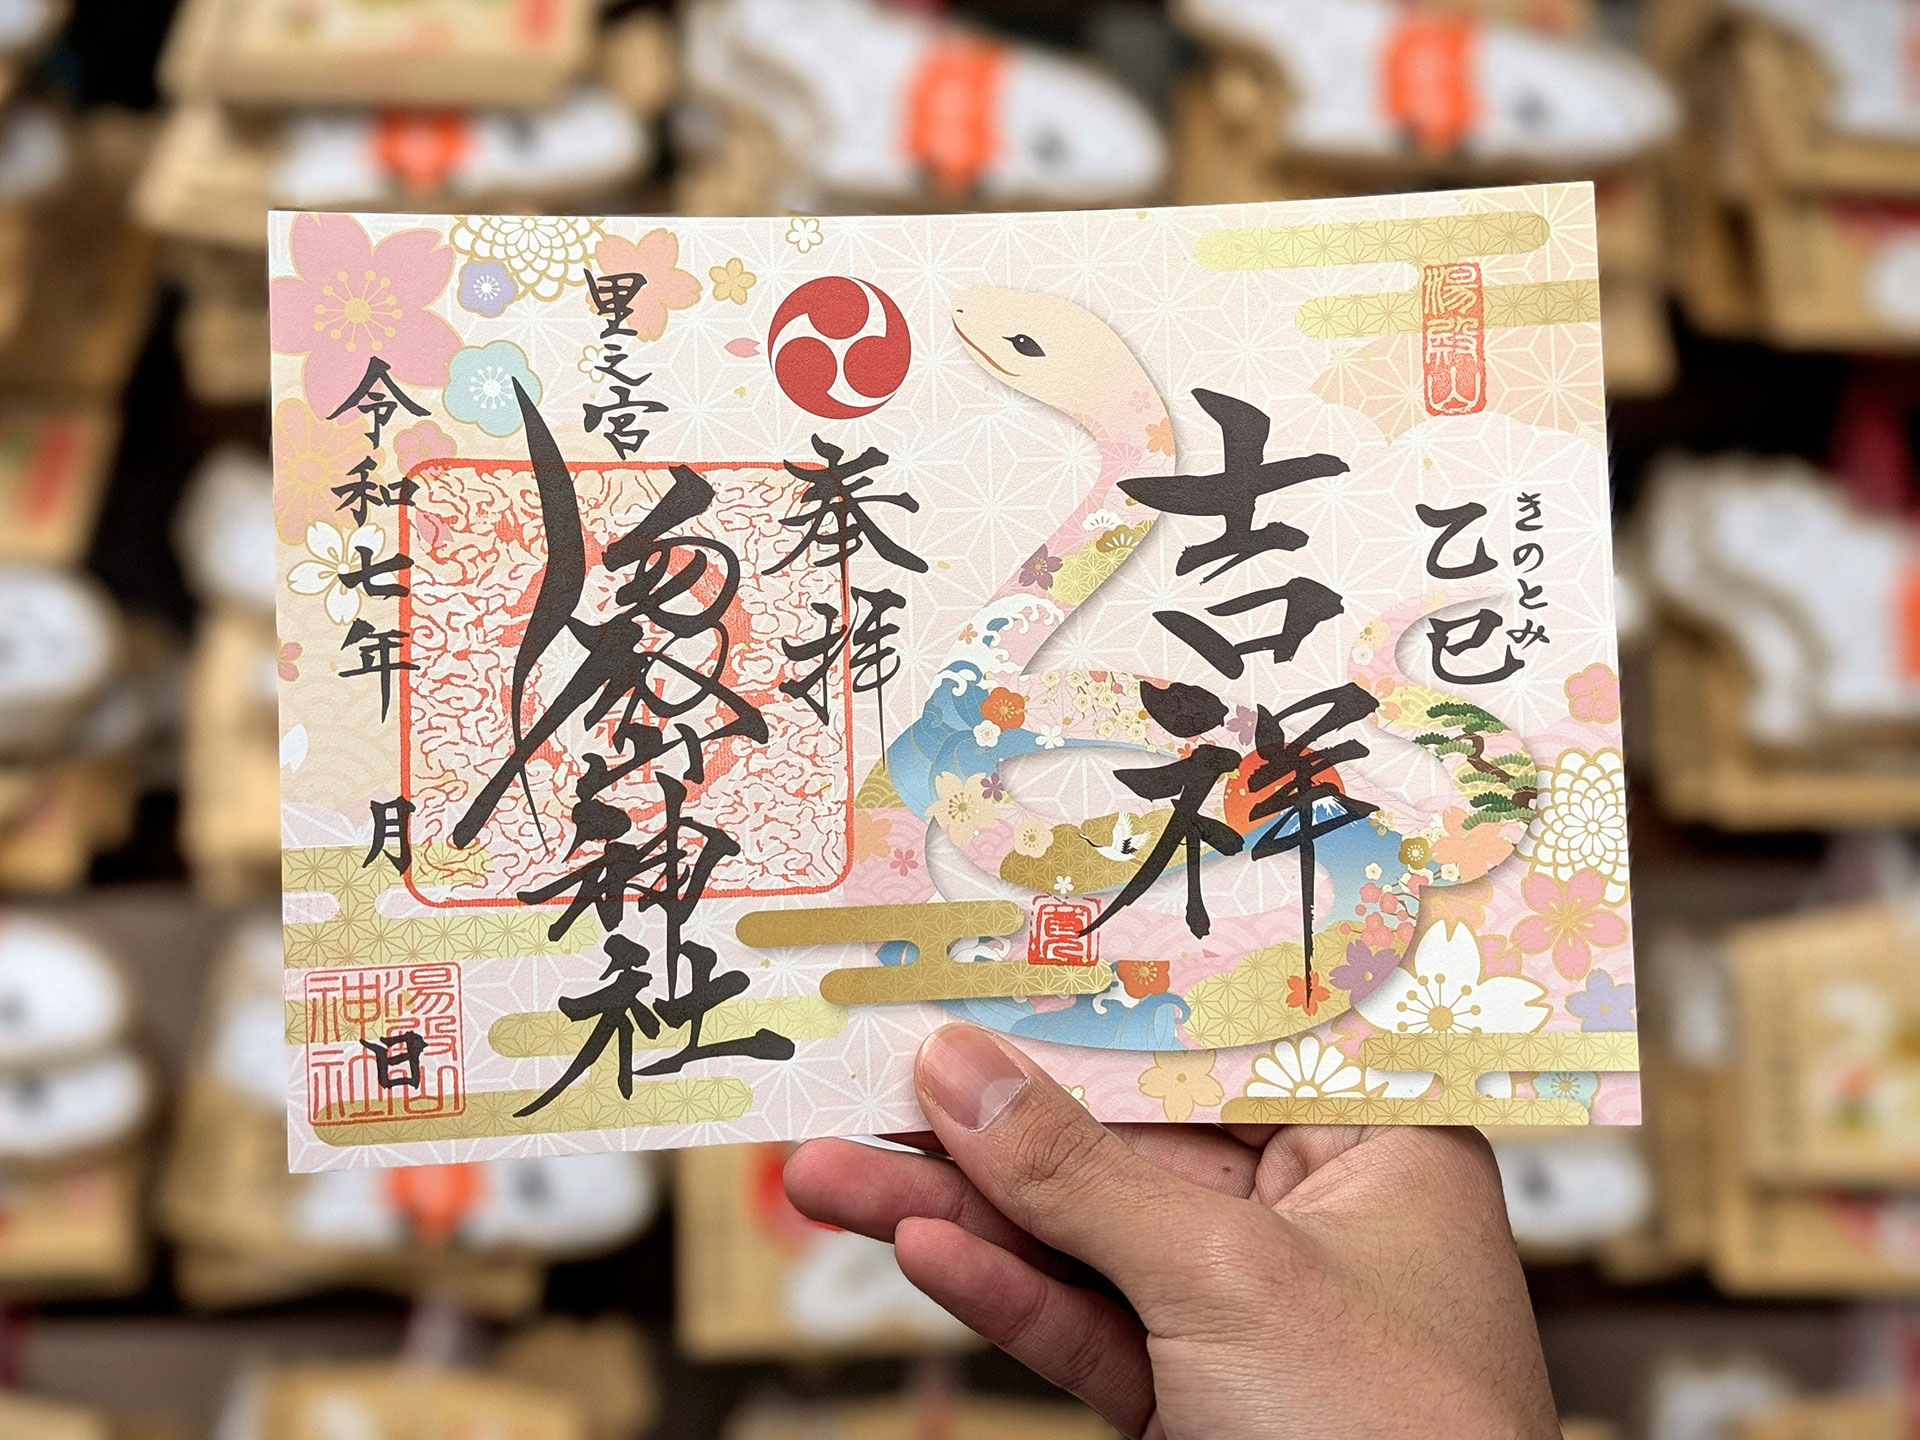 湯殿山
きのとみ
乙巳
吉祥
奉拝
里之宮
湯殿山神社
令和七年 月 日
湯殿山神社